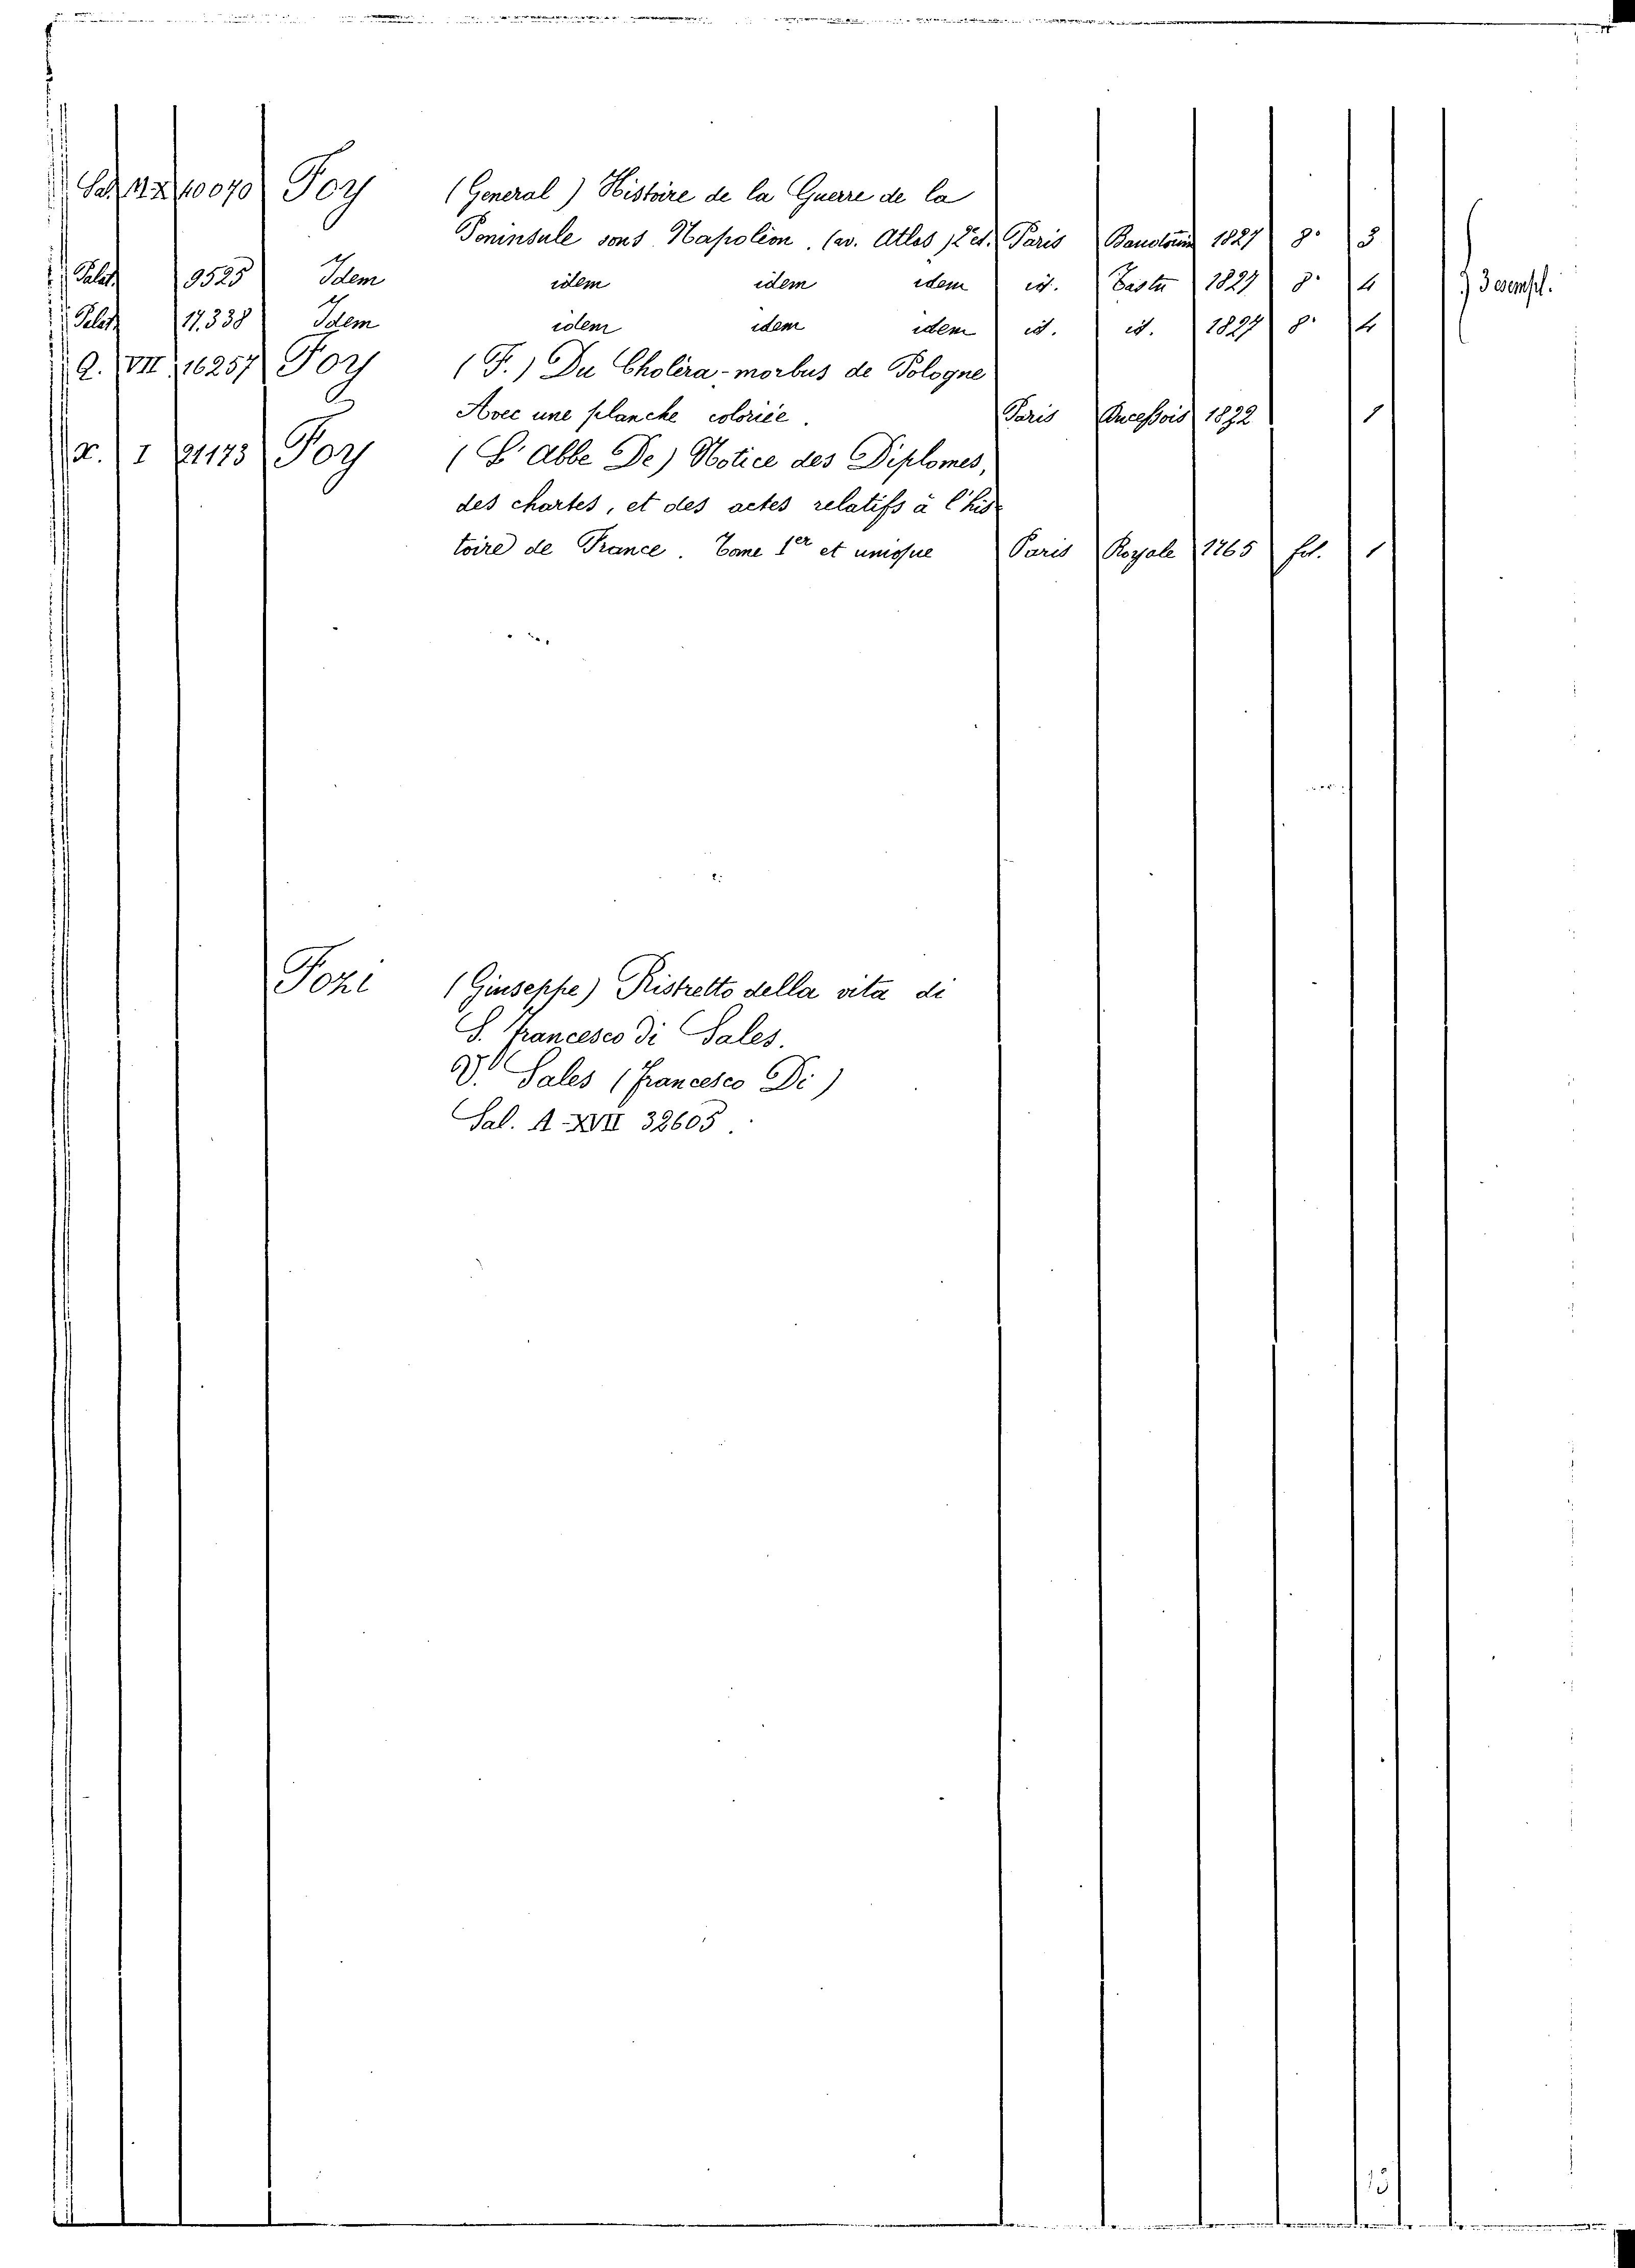 10070 Foy (General) Histoire de la Guerre de la
Peninsule sous Napoléon. (av. Atlas) 2 ed. Paris 1827 8° 3
Palat. 9525 Idem idem idem idem id. Tastu 1827 8° 4 3 esempl.
Palat. 17.338 Idem idem idem idem id. id. 1827 8° 4
Q. VII 16257 Foy (F.) Du Choléra-morbus de Pologne
Avec une planche coloriée. Paris 1832 1
X. I 21173 Foy (L'Abbe De) Notice des Diplomes,
des chartes, et des actes relatifs à l'his-
toire de France. Tome 1er et unique Paris Royale 1765 fol. 1
Fozi (Giuseppe) Ristretto della vita di
S. Francesco di Sales.
V. Sales (Francesco Di)
Sal. A-XVII 32605.
15